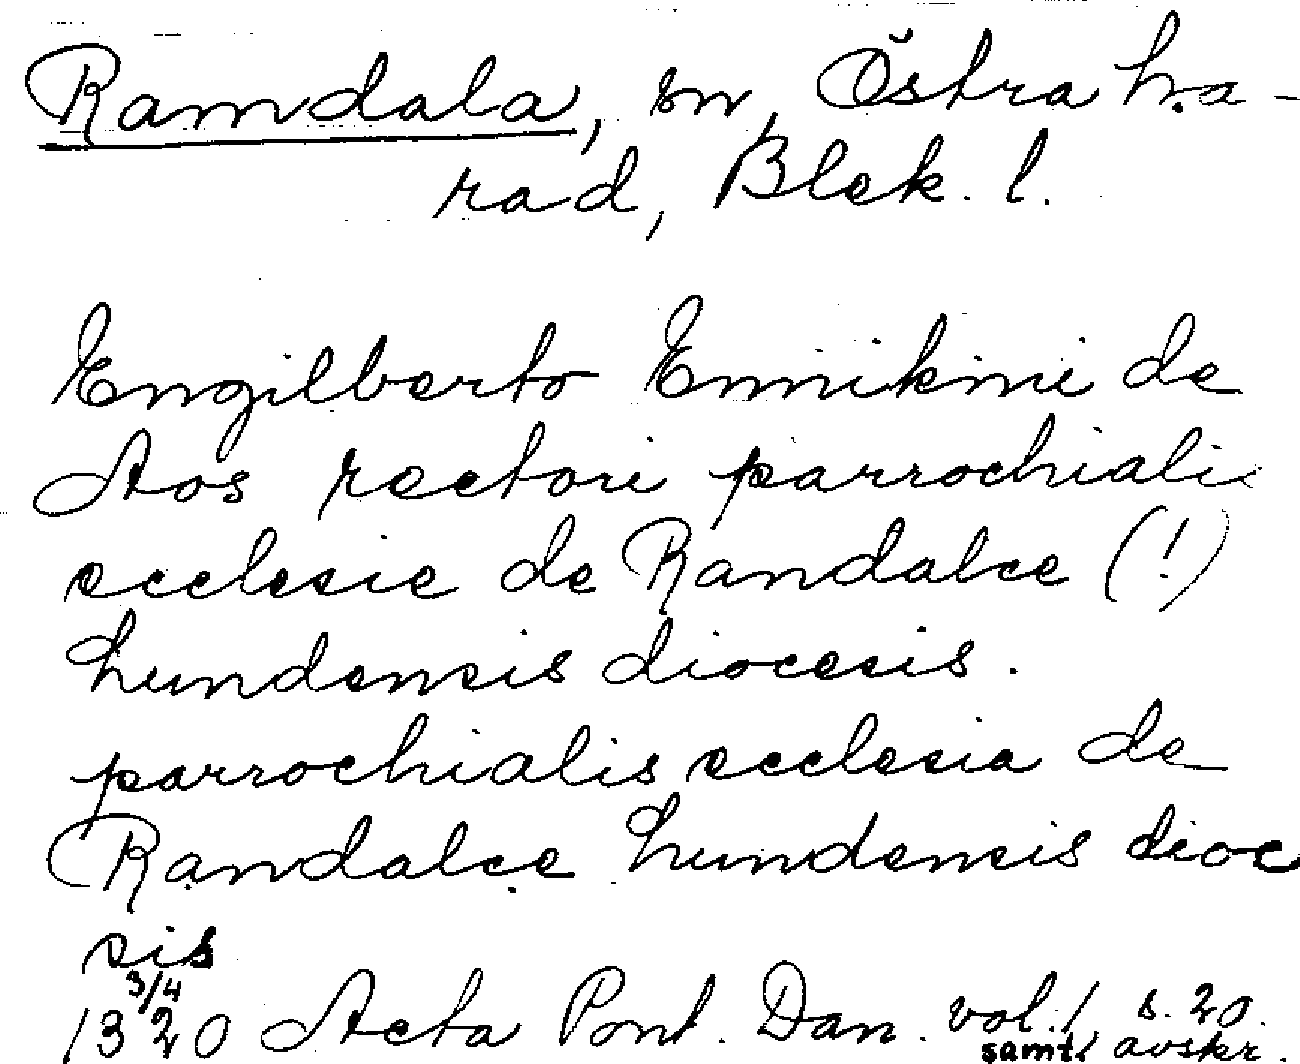 Ramdala, sn, Östra hä-
rad, Blek. l.
Engilberto Ennikini de
Aos rectori parrochialis
ecclesie de Randalce (!)
Lundensis diocesis.
parrochialis ecclesia de
Randalce Lundensis dioc
esis
3/4
1320 Acta Pont. Dan. vol. 1, s. 20.
samt. avskr.